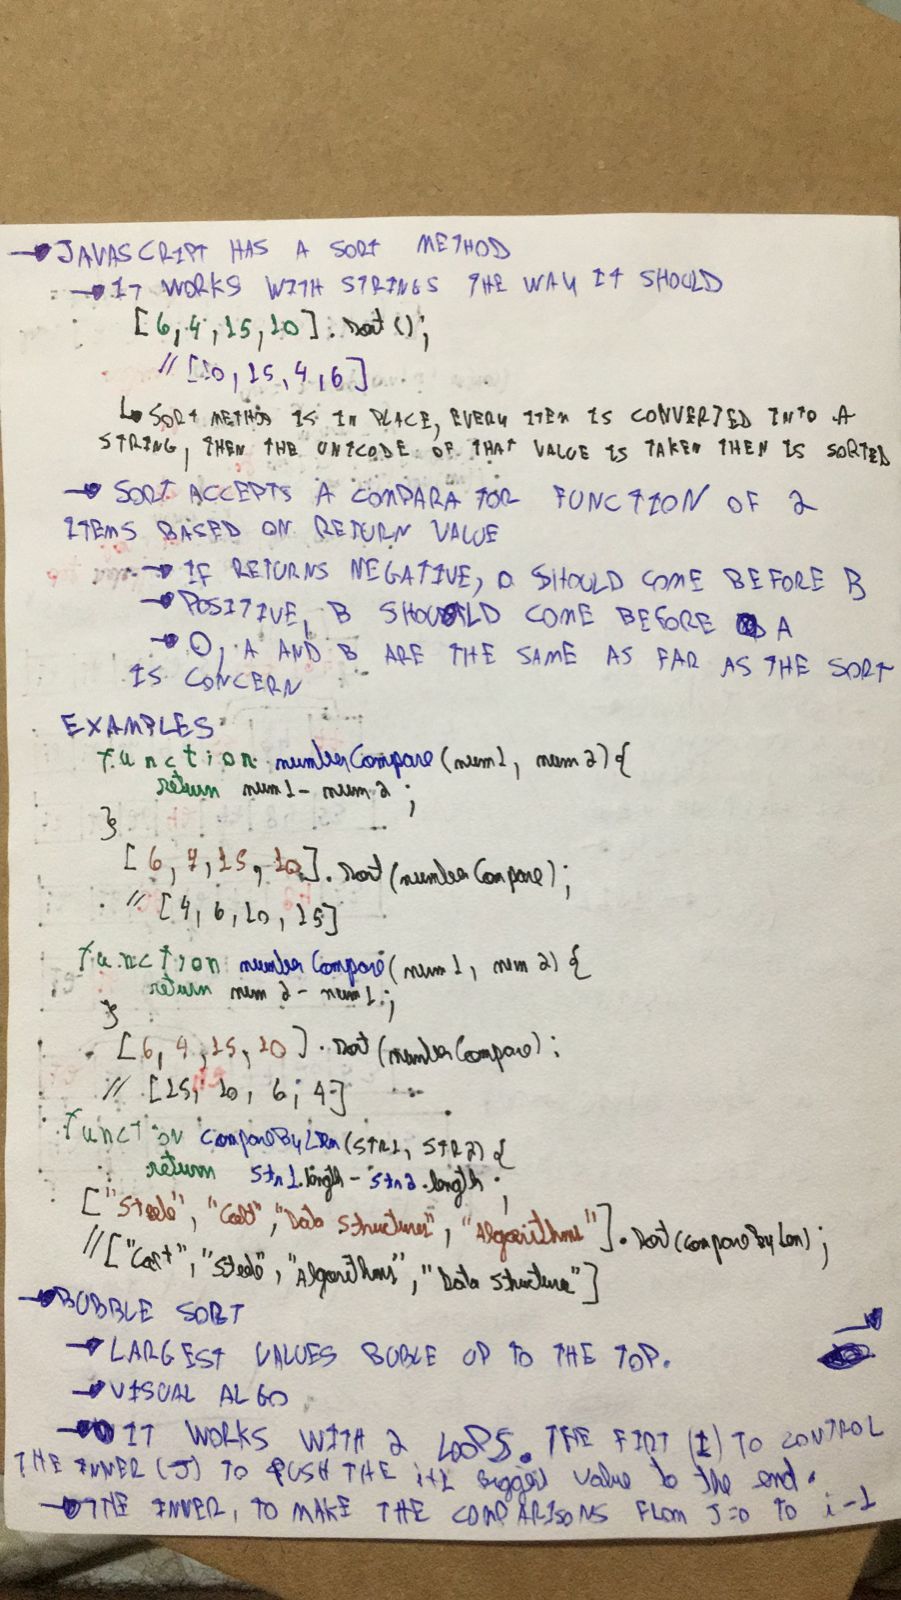 → JAVASCRIPT HAS A SORT METHOD
→ IT WORKS WITH STRINGS THE WAY IT SHOULD
[6, 4, 15, 10].sort();
// [10, 15, 4, 6]
↳ SORT METHOD IS IN PLACE, EVERY ITEM IS CONVERTED INTO A
STRING, THEN THE UNICODE OF THAT VALUE IS TAKEN THEN IS SORTED
→ SORT ACCEPTS A COMPARATOR FUNCTION OF 2
ITEMS BASED ON RETURN VALUE
→ IF RETURNS NEGATIVE, A SHOULD COME BEFORE B
→ POSITIVE, B SHOULD COME BEFORE A
→ 0, A AND B ARE THE SAME AS FAR AS THE SORT
IS CONCERN
EXAMPLES
function numberCompare(num1, num2){
return num1 - num2;
}
[6, 4, 15, 10].sort(numberCompare);
// [4, 6, 10, 15]
function numberCompare(num1, num2){
return num2 - num1;
}
[6, 4, 15, 10].sort(numberCompare);
// [15, 10, 6, 4]
function compareByLen(STR1, STR2){
return str1.length - str2.length;
["Steele", "Colt", "Data Structures", "Algorithms"].sort(compareByLen);
// ["Colt", "Steele", "Algorithms", "Data Structure"]
→ BUBBLE SORT
→ LARGEST VALUES BUBLE UP TO THE TOP.
→ VISUAL ALGO
→ IT WORKS WITH 2 LOOPS. THE FIRT (I) TO CONTROL
THE INNER (J) TO PUSH THE i+1 bigger value to the end.
→ THE INNER, TO MAKE THE COMPARISONS FROM J=0 TO i-1